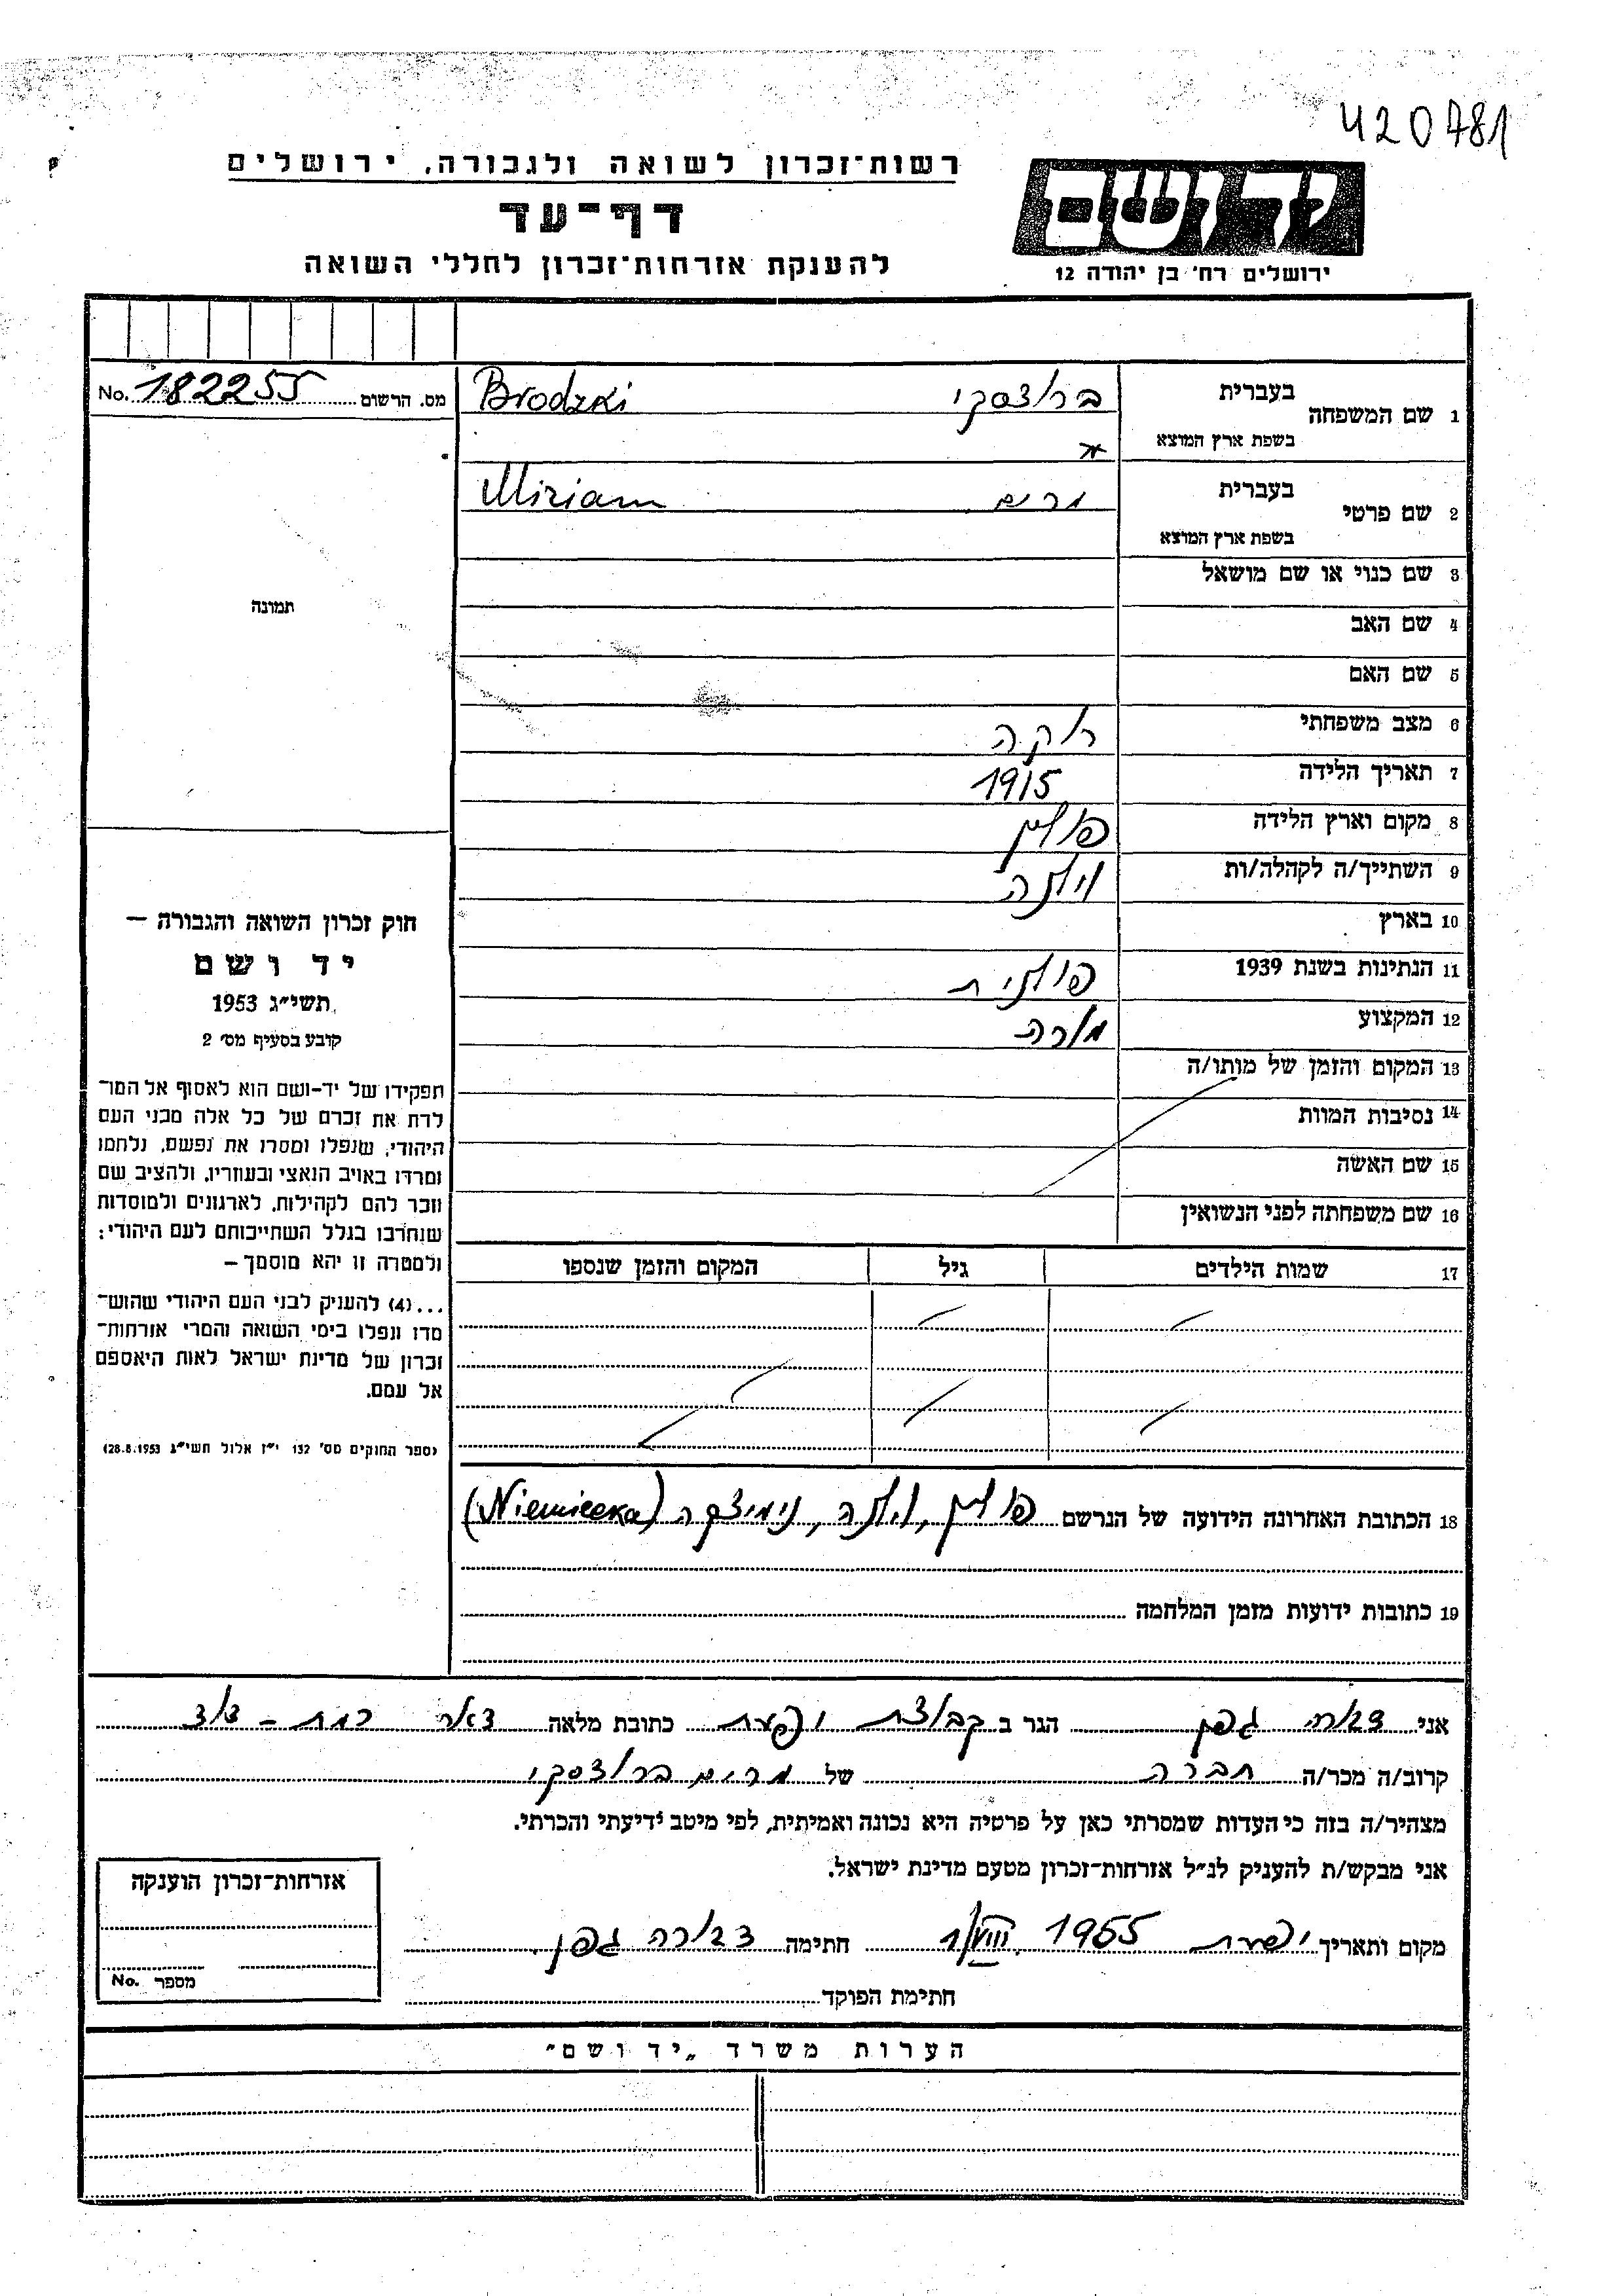 420781
רשות־זכרון לשואה ולגבורה, ירושלים
דף־עד
להענקת אזרחות־זכרון לחללי השואה
יד ושם
ירושלים רח' בן יהודה 12
מס. הרשום No. 182255
1 שם המשפחה בעברית ברודצקי Brodzki
בשפת ארץ המוצא
2 שם פרטי בעברית מרים Miriam
בשפת ארץ המוצא
3 שם כנוי או שם מושאל
4 שם האב
5 שם האם
6 מצב משפחתי רוקה
7 תאריך הלידה 1915
8 מקום וארץ הלידה פולין
9 השתייך/ה לקהלה/ות וילנה
10 בארץ
11 הנתינות בשנת 1939 פולנית
12 המקצוע מורה
13 המקום והזמן של מותו/ה
14 נסיבות המוות
15 שם האשה
16 שם משפחתה לפני הנשואין
17 שמות הילדים גיל המקום והזמן שנספו
תמונה
חוק זכרון השואה והגבורה –
יד ושם
תשי״ג 1953
קובע בסעיף מס׳ 2
תפקידו של יד-ושם הוא לאסוף אל המו־
לדת את זכרם של כל אלה מבני העם
היהודי, שנפלו ומסרו את נפשם, נלחמו
ומרדו באויב הנאצי ובעוזריו, ולהציב שם
וזכר להם לקהילות, לארגונים ולמוסדות
שנחרבו בגלל השתייכותם לעם היהודי;
ולמטרה זו יהא מוסמך –
...(4) להעניק לבני העם היהודי שהוש־
מדו ונפלו בימי השואה והמרי אזרחות־
זכרון של מדינת ישראל לאות היאספם
אל עמם.
(ספר החוקים מס׳ 132 י״ז אלול תשי״ג 28.8.1953)
18 הכתובת האחרונה הידועה של הנרשם פולין, וילנה, נימיצקה (Niemiecka)
19 כתובות ידועות מזמן המלחמה
אני דבורה גפן הגר ב קבוצת יפעת כתובת מלאה דאר רמת - דוד
קרוב/ה מכר/ה חברה של מרים ברודצקי
מצהיר/ה בזה כי העדות שמסרתי כאן על פרטיה היא נכונה ואמיתית, לפי מיטב ידיעתי והכרתי.
אני מבקש/ת להעניק לנ״ל אזרחות־זכרון מטעם מדינת ישראל.
מקום ותאריך יפעת 1955 חתימה דבורה גפן
חתימת הפוקד
אזרחות־זכרון הוענקה
מספר No.
הערות משרד „יד ושם״